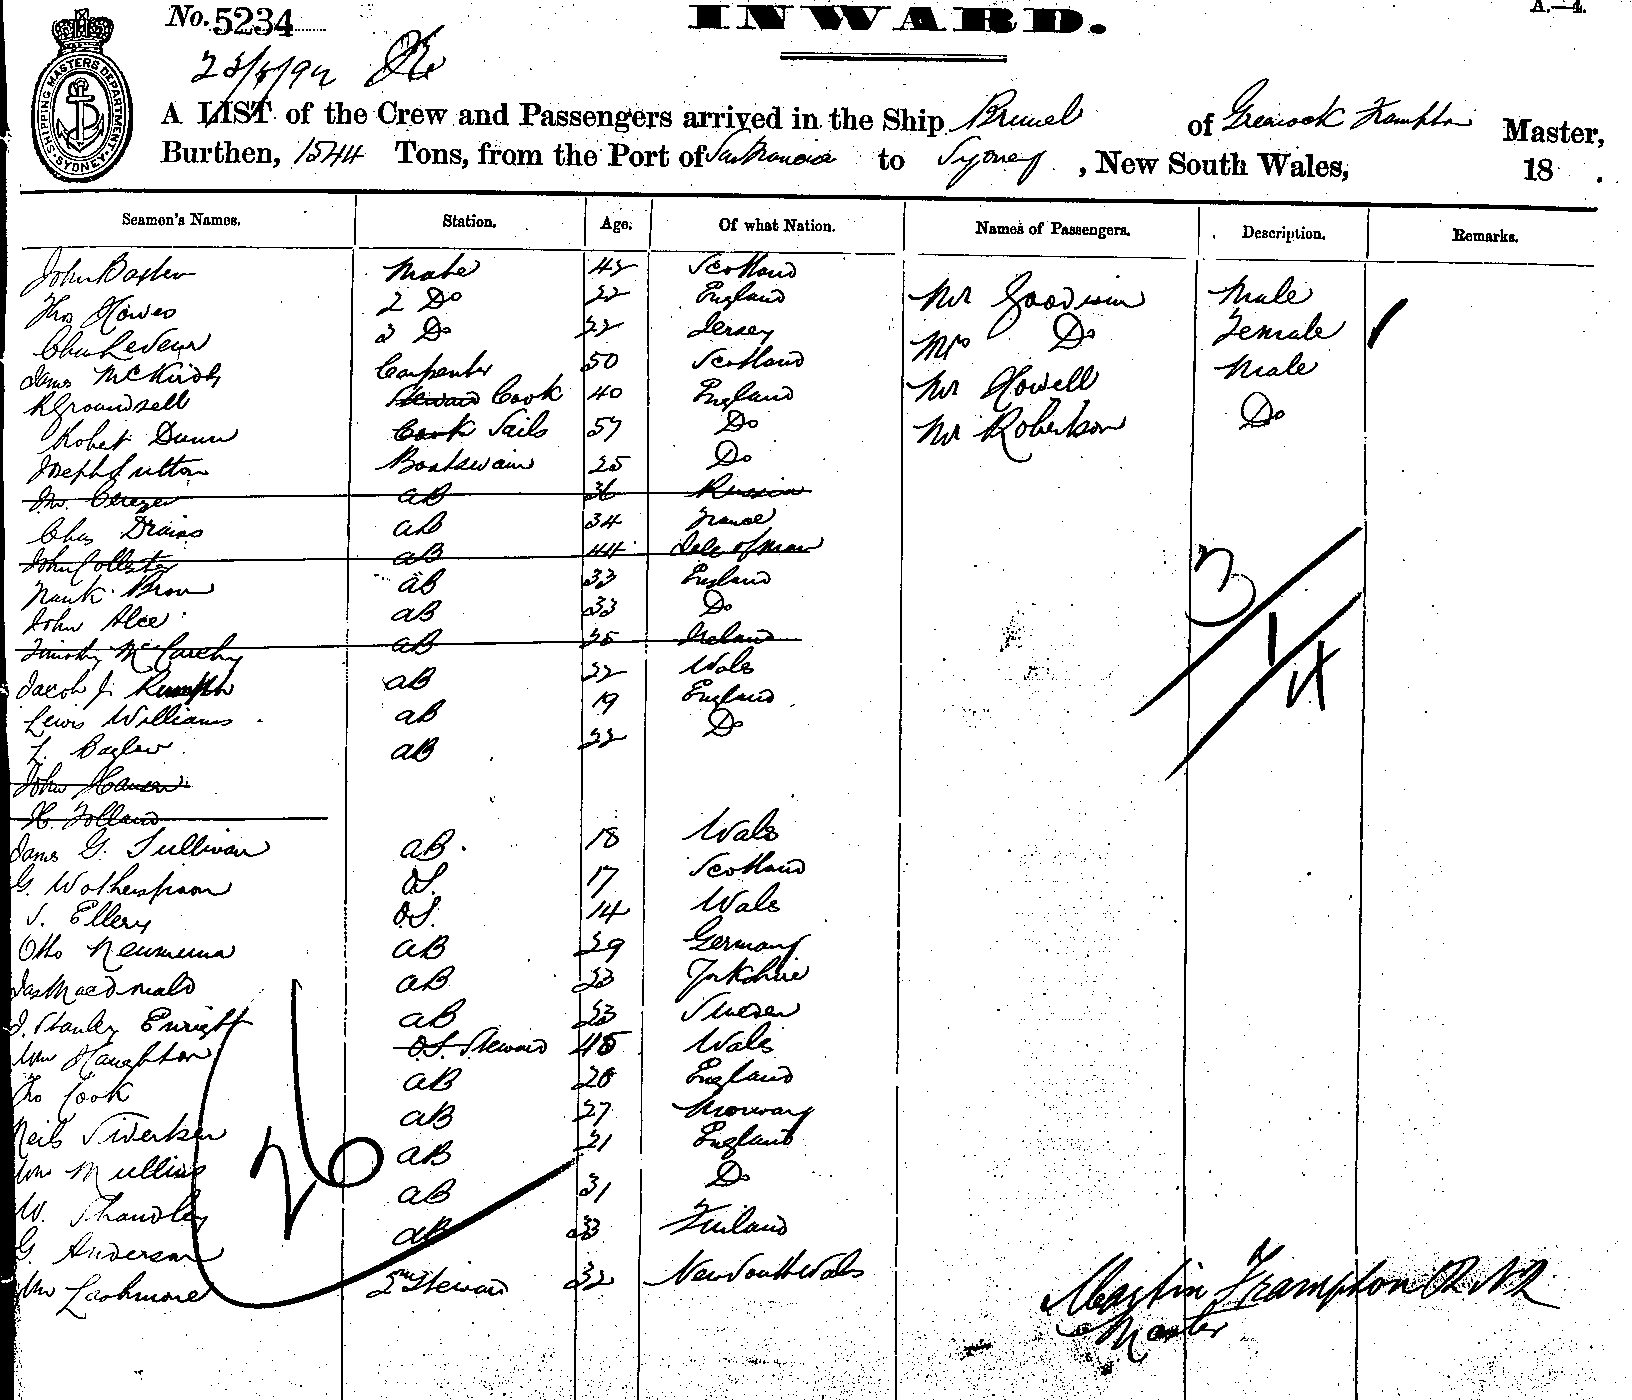 No. 5234
INWARD.
A.—4.
SHIPPING MASTERS DEPARTMENT SYDNEY
A LIST of the Crew and Passengers arrived in the Ship Brunel of Greenock Frampton Master,
Burthen, 1544 Tons, from the Port of San Francisco to Sydney, New South Wales, 18 .
Seamen's Names. Station. Age. Of what Nation. Names of Passengers. Description. Remarks.
John Mate 42 Scotland
Thos Howes 2 Do 22 England Mr Goodwin Male
Chas LeSeur 3 Do 22 Jersey Mrs Do Female
James McKirdy Carpenter 50 Scotland Mr Howell Male
R Groundsell Steward Cook 40 England Mr Robertson Do
Robert Dunn Cook Sails 57 Do
Joseph Sutton Boatswain 25 Do
AB 36 Russia
Chas AB 34 France
John Collister AB 44 Isle of Man
Frank Brow AB 33 England
John Alce AB 33 Do
Timothy McCarthy AB 25 Ireland
Jacob J. Rumph AB 22 Wales
Lewis Williams AB 19 England
AB 22 Do
John Hansen
H. Tolland
James G. Sullivan AB 18 Wales
G. Wotherspoon OS. 17 Scotland
S. Ellery O.S. 14 Wales
Otto Neumann AB 29 Germany
Jas Macdonald AB 23 Yorkshire
J. Stanley Enright AB 23 Sweden
Wm Haughton O.S. Steward 45 Wales
Tho Cook AB 20 England
Neils Siverksen AB 27 Norway
Wm Mullins AB 21 England
W. Shandley AB 31 Do
G. Anderson AB 33 Finland
Wm Lashmore 2nd Steward 32 New South Wales
26
3/1/4
Martin Frampton R N R
Master